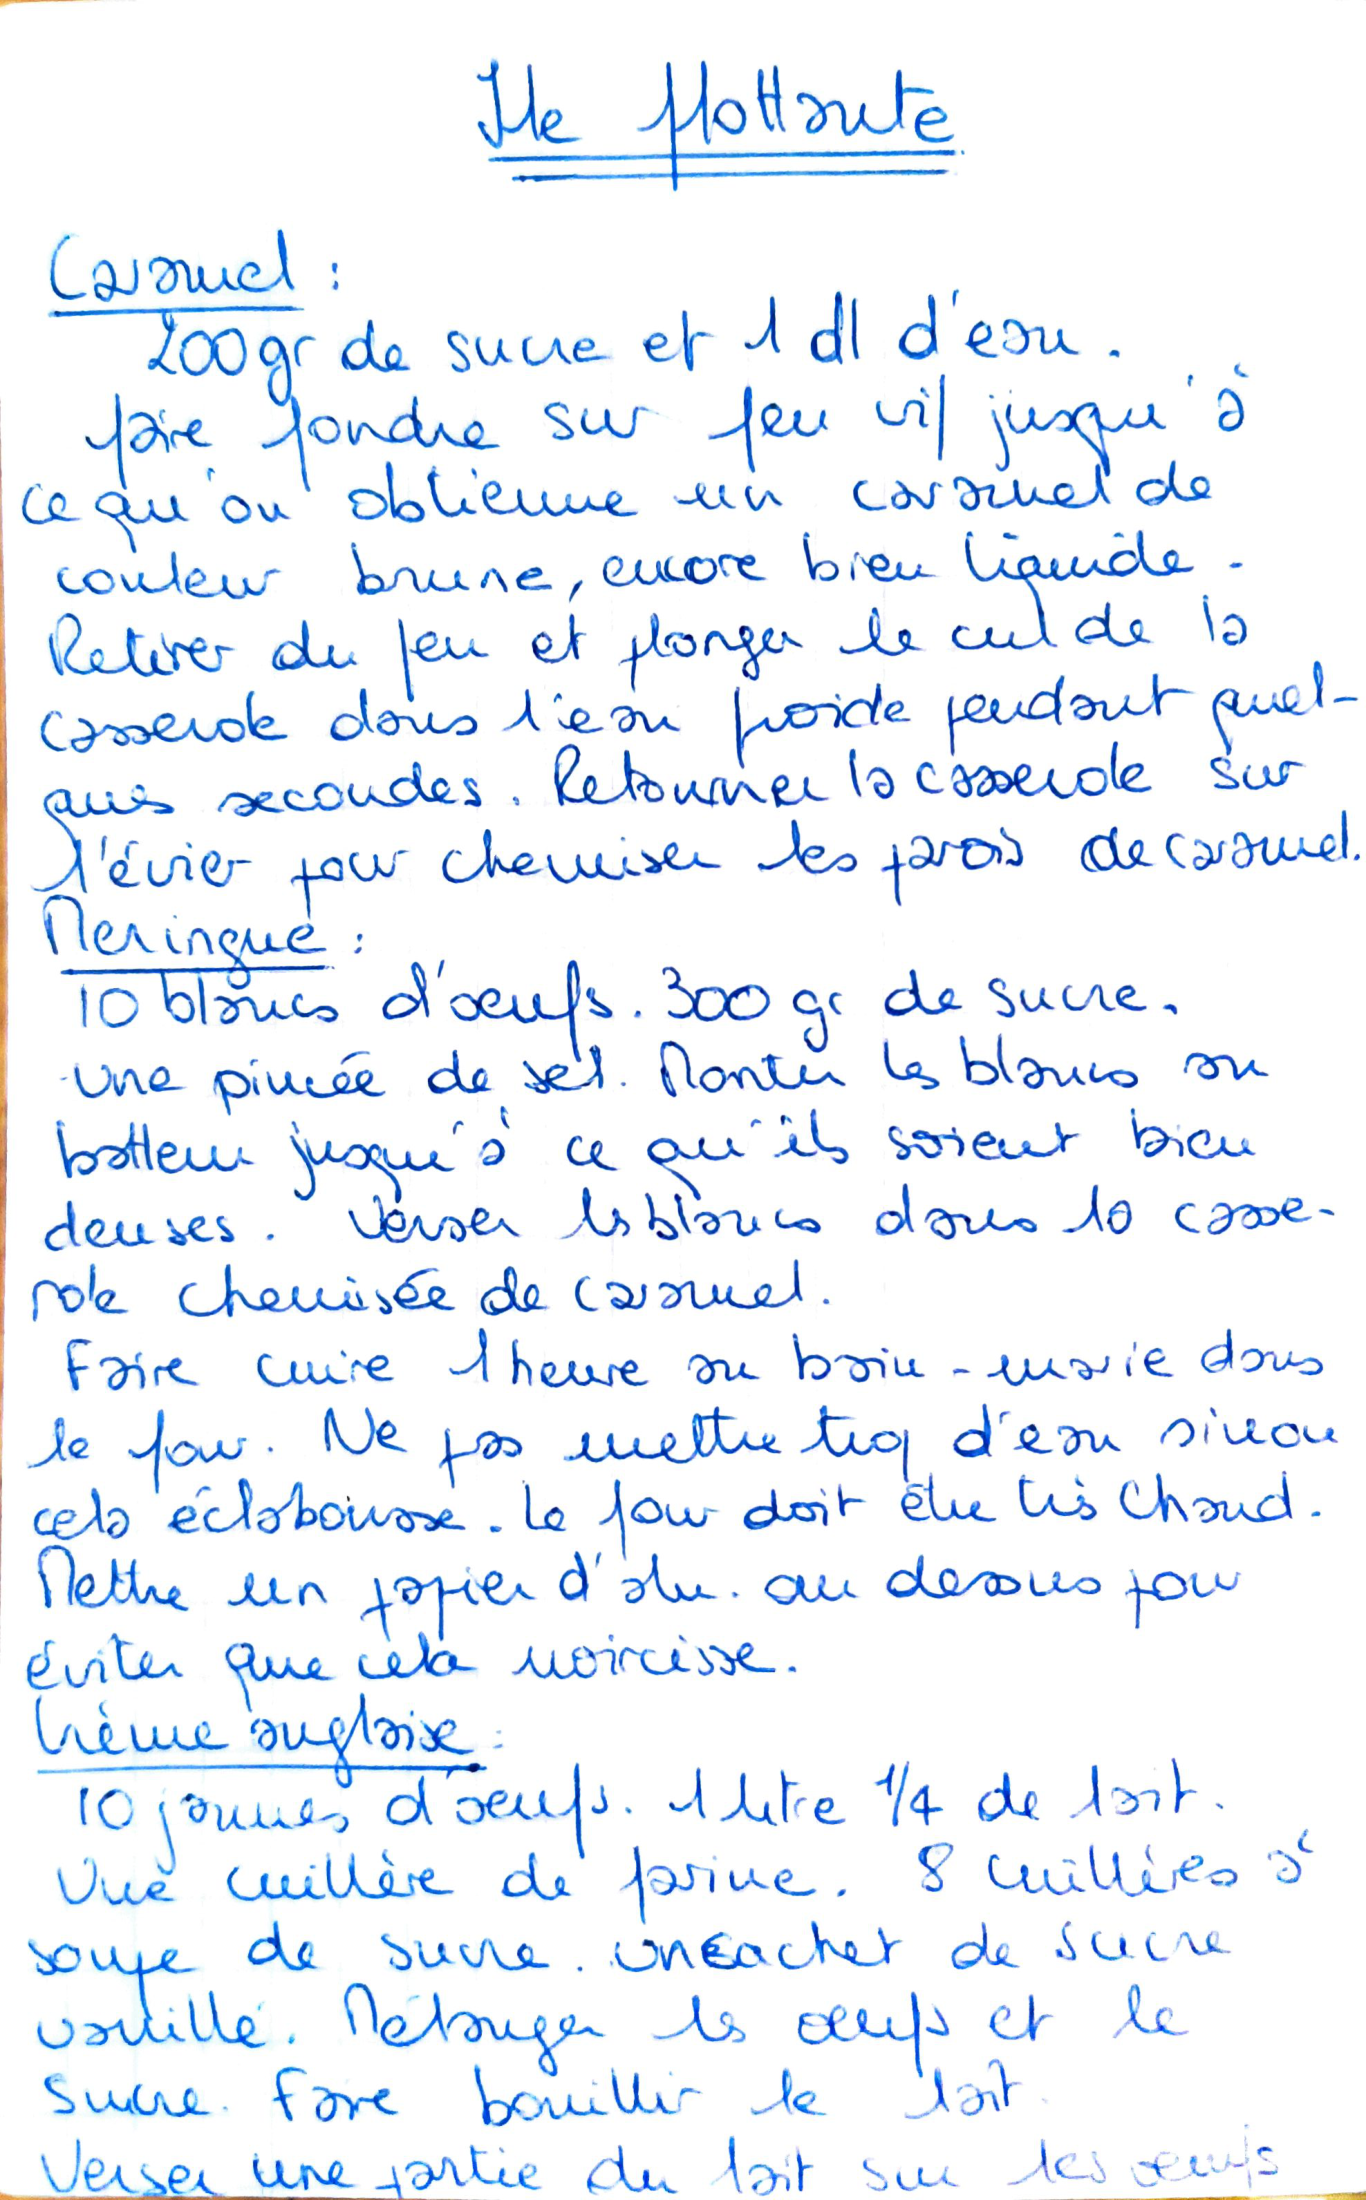 Ile flottante
Caramel :
200 gr de sucre et 1 dl d'eau.
faire fondre sur feu vif jusqu'à
ce qu'on obtienne un caramel de
couleur brune, encore bien liquide.
Retirer du feu et plonger le cul de la
casserole dans l'eau froide pendant quel-
ques secondes. Retourner la casserole sur
l'évier pour chemiser les parois de caramel.
Meringue :
10 blancs d'oeufs. 300 gr de sucre.
une pincée de sel. Monter les blancs au
batteur jusqu'à ce qu'ils soient bien
denses. Verser les blancs dans la casse-
role chemisée de caramel.
Faire cuire 1 heure au bain-marie dans
le four. Ne pas mettre trop d'eau sinon
cela éclabousse. Le four doit être très chaud.
Mettre un papier d'alu. au dessus pour
éviter que cela noircisse.
Crème anglaise :
10 jaunes d'oeufs. 1 litre 1/4 de lait.
Une cuillère de farine. 8 cuillères à
soupe de sucre. un cachet de sucre
vanillé. Mélanger les oeufs et le
sucre. Faire bouillir le lait.
Verser une partie du lait sur les oeufs